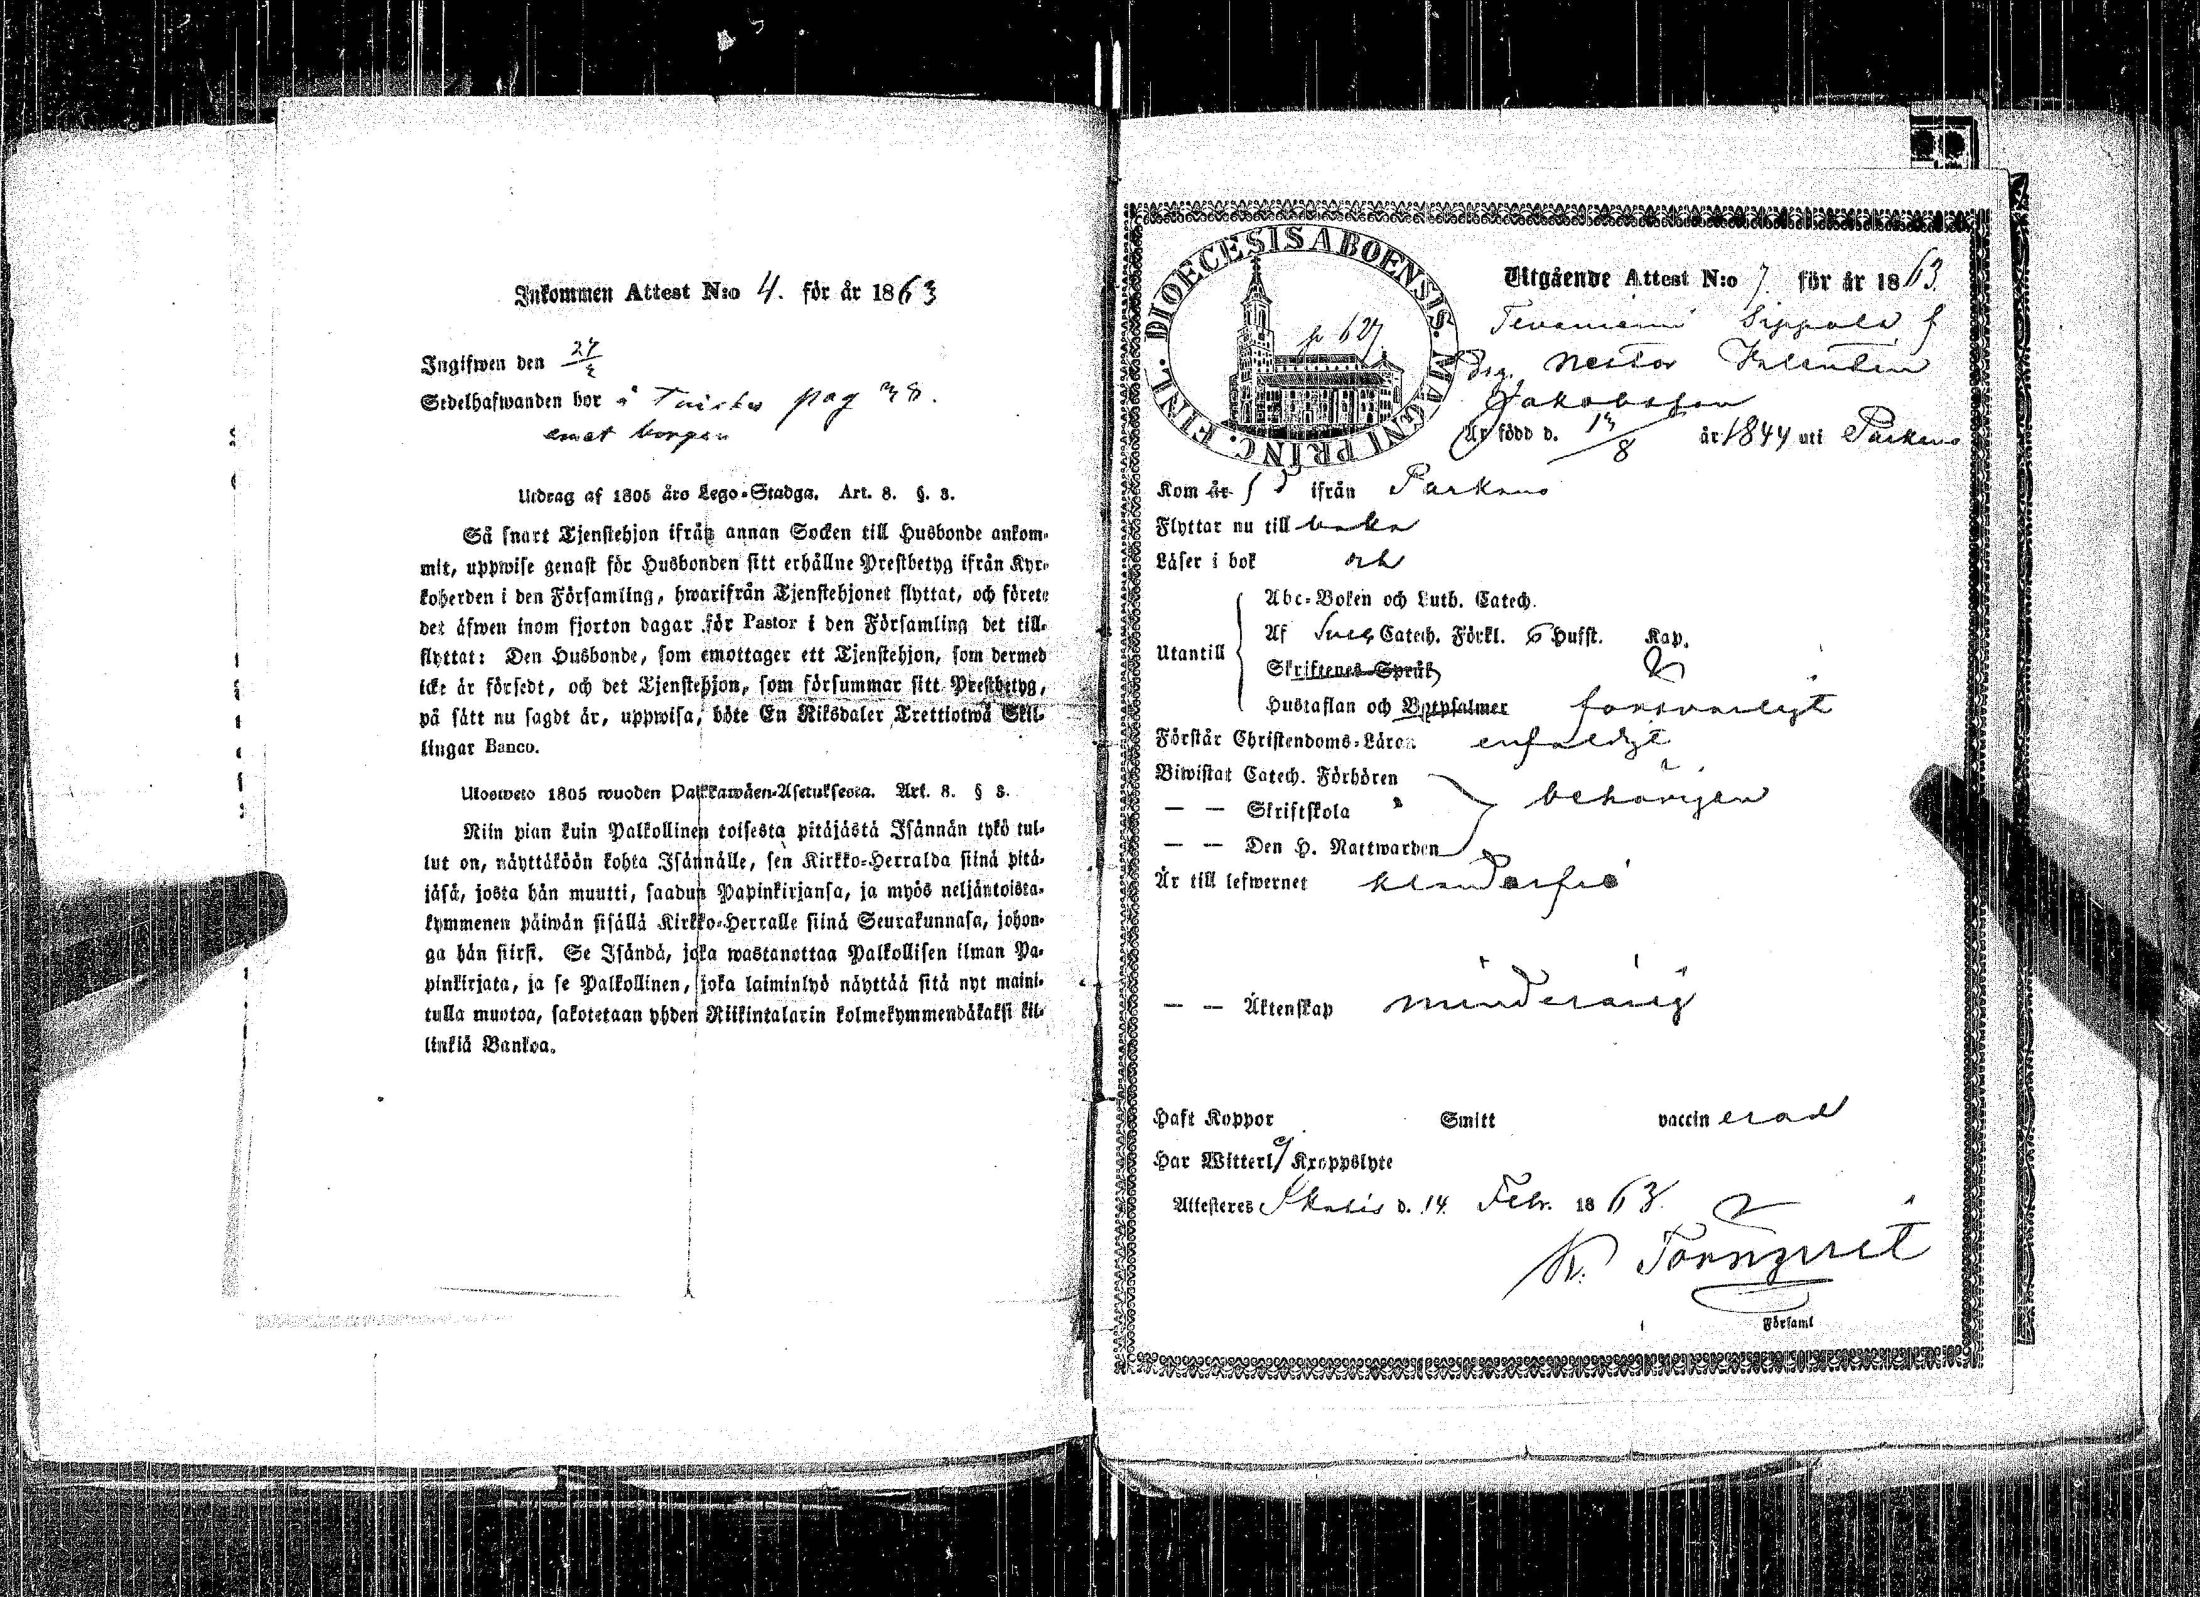 Inkommen Attest N:o 4. för år 1863
Ingifwen den 24/2
Sedelhafwanden bor å pag 38.
emot borgen
Utdrag af 1805 års Lego-Stadga. Art. 8. §. 3.
Så snart Tjenstehjon ifrån annan Socken till Husbonde ankom-
mit, uppwise genast för Husbonden sitt erhållne Prestbetyg ifrån Kyr-
koherden i den Församling, hwarifrån Tjenstehjonet flyttat, och förete
det äfwen inom fjorton dagar för Pastor i den Församling det till-
flyttat: Den Husbonde, som emottager ett Tjenstehjon, som dermed
icke är försedt, och det Tjenstehjon, som försummar sitt Prestbetyg,
på sätt nu sagdt är, uppwisa, böte En Riksdaler Trettiotwå Skil-
lingar Banco.
Ulosweto 1805 wuoden Palkkawäen-Asetuksesta. Art. 8. § 3.
Niin pian kuin Palkollinen toisesta pitäjästä Isännän tykö tul-
lut on, näyttäköön kohta Isännälle, sen Kirkko-Herralda siinä pitä-
jäsä, josta hän muutti, saadun Papinkirjansa, ja myös neljäntoista-
kymmenen päiwän sisällä Kirkko-Herralle siinä Seurakunnasa, johon-
ga hän siirsi. Se Isändä, joka wastanottaa Palkollisen ilman Pa-
pinkirjata, ja se Palkollinen, joka laiminlyö näyttää sitä nyt maini-
tulla muotoa, sakotetaan yhden Riikintalarin kolmekymmendäkaksi kil-
linkiä Bankoa.
DIOECESIS ABOENSIS. MAGNI PRINC. FINL.
p 627
Utgående Attest N:o 7. för år 1863.
Tevaniemi Sippola f
Drg. Nestor Valentin
Jakobsson
Är född d. 13/8 år 1844 uti Parkano
Kom år ifrån Parkano
Flyttar nu till baka
Läser i bok och
Utantill
Abc-Boken och Luth. Catech.
Af Sveb Catech. Förkl. 6 Hufst. Kap.
Skriftenes Språk
Hustaflan och Botpsalmer försvarligt
Förstår Christendoms-Läran enfaldigt
Biwistat Catech. Förhören
— — Skriftskola behörigen
— — Den H. Nattwarden
Är till lefwernet klanderfri
— — Äktenskap minderårig
Haft Koppor Smitt vaccinerad
Har Witterl. ej Kroppslyte
Attesteres Ikalis d. 14. Febr. 1863.
K. Törnqvist
Församl